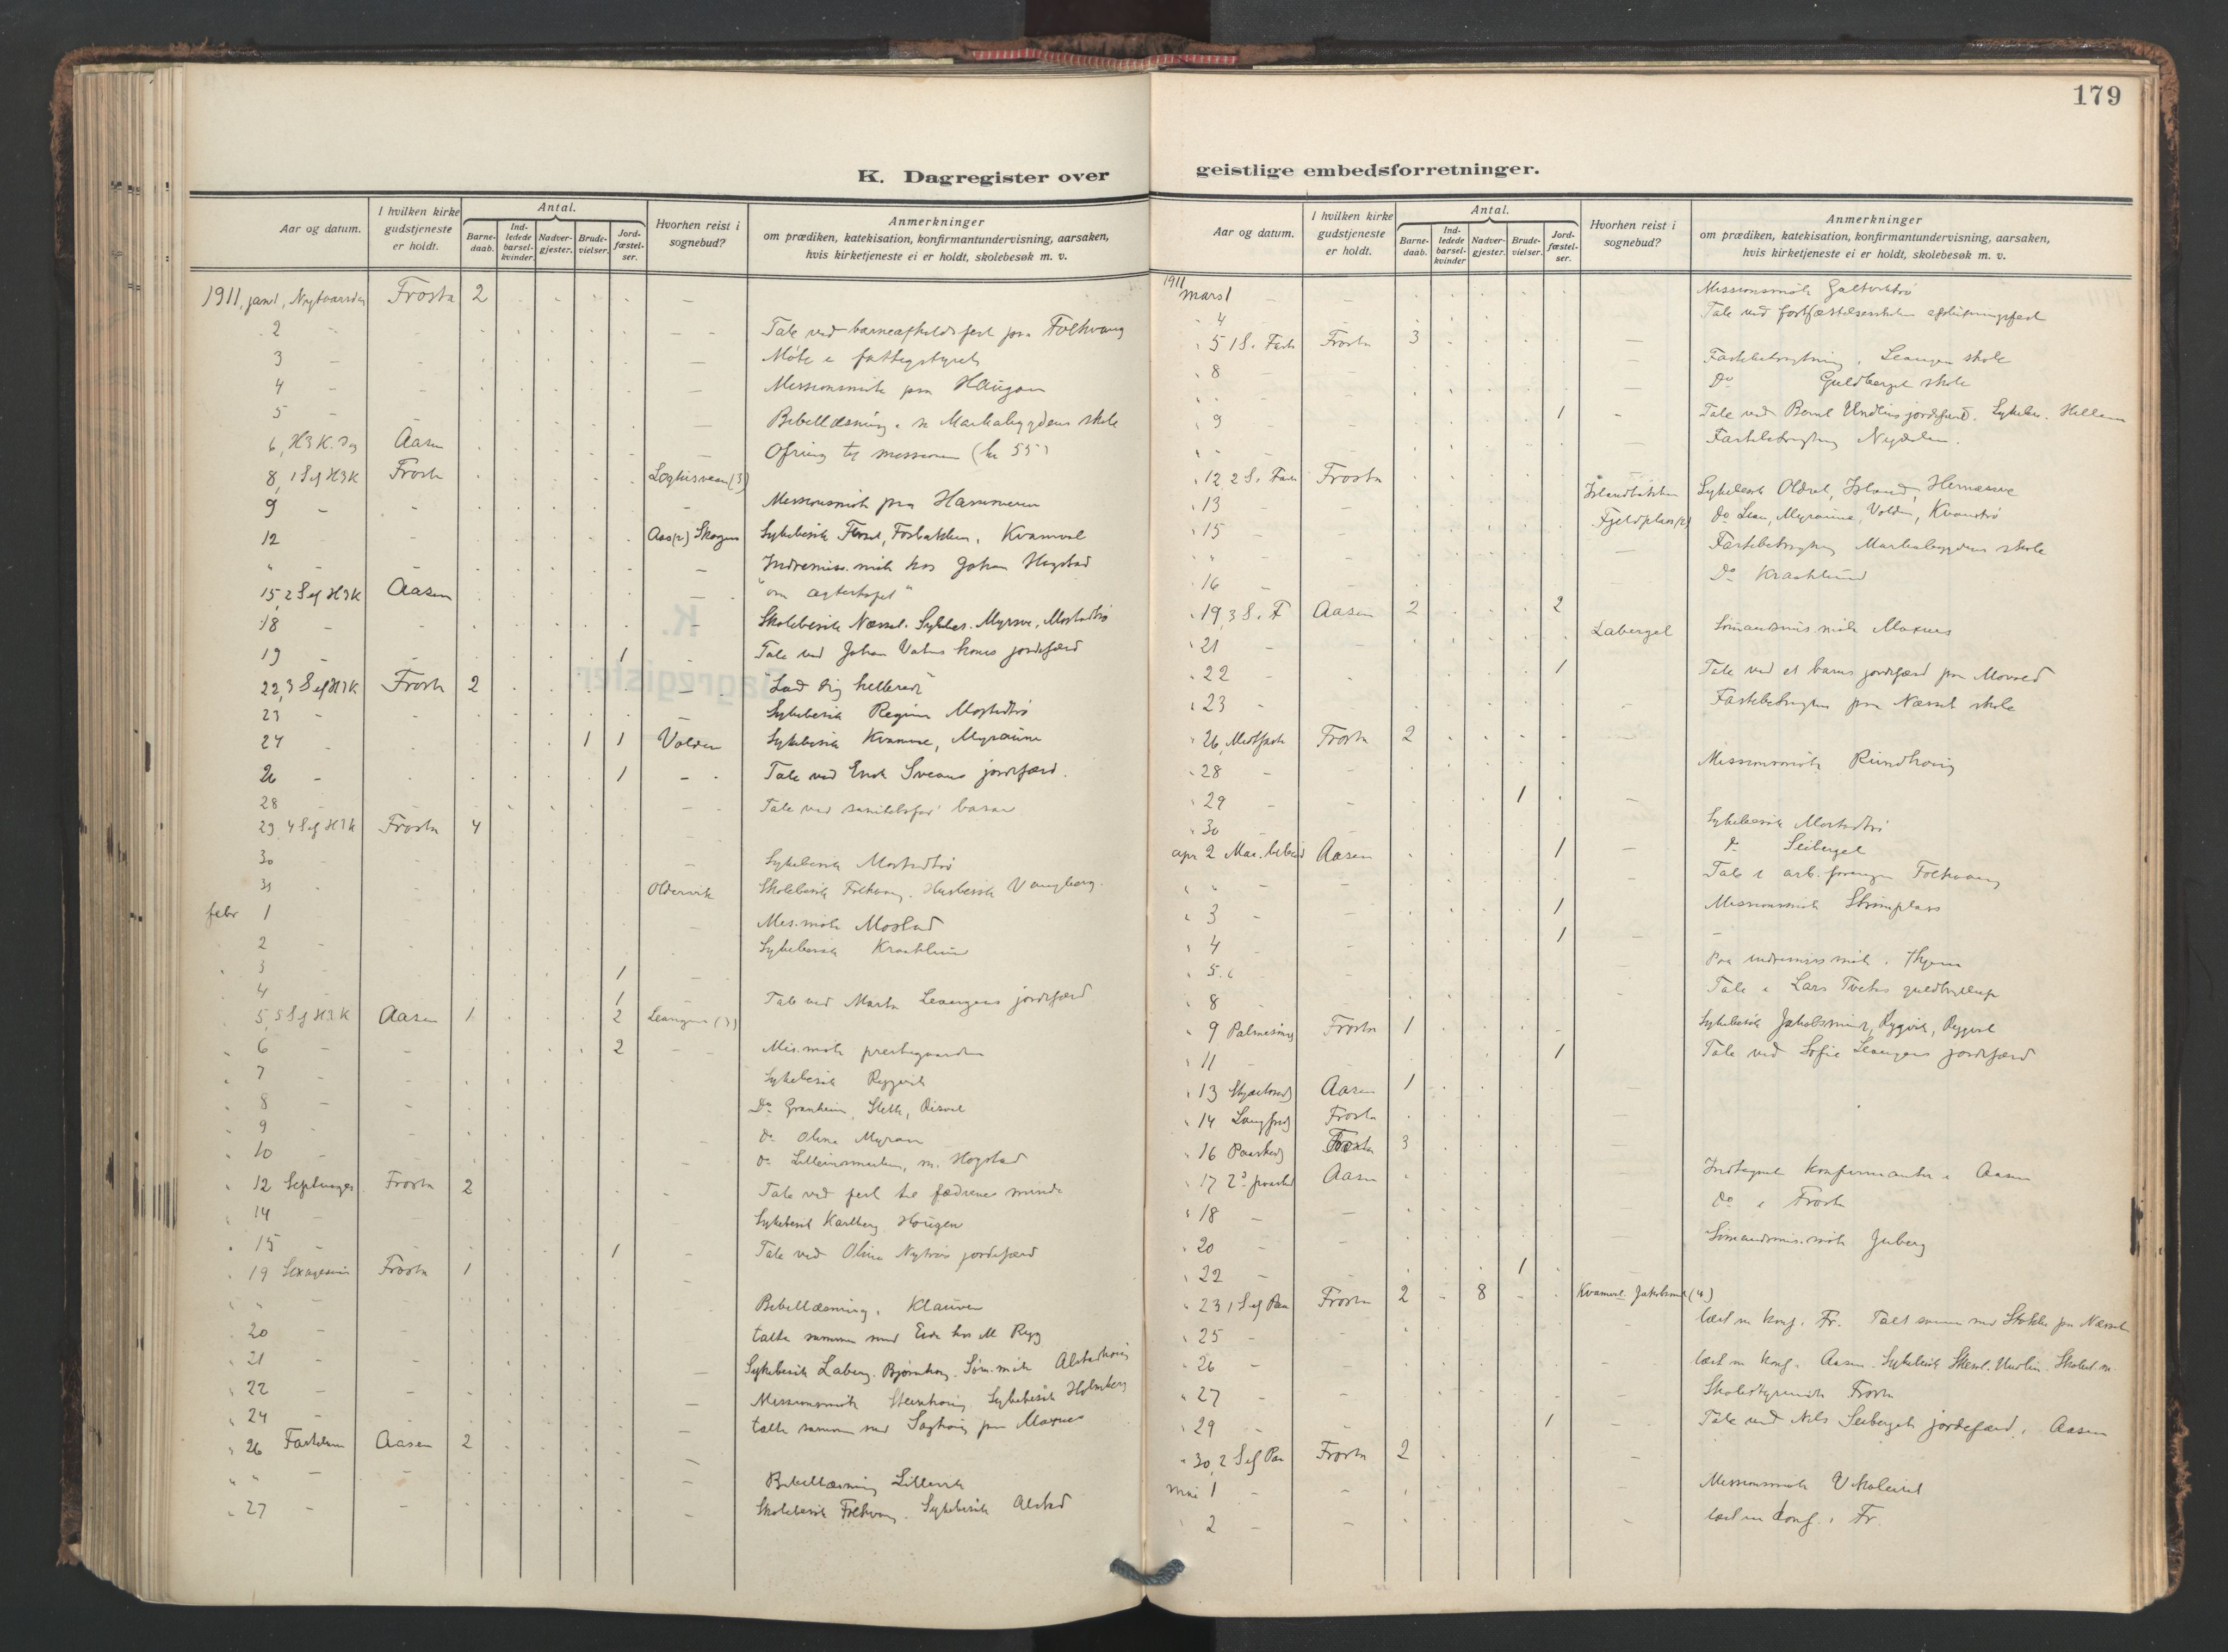 179
K. Dagregister over geistlige embedsforretninger.
Aar og datum. I hvilken kirke gudstjeneste er holdt. Antal. Barnedaab. Indledede barselkvinder. Nadvergjester. Brudevielser. Jordfæstelser. Hvorhen reist i sognebud? Anmerkninger om prædiken, katekisation, konfirmantundervisning, aarsaken, hvis kirketjeneste ei er holdt, skolebesøk m. v.
1911, jan 1, Nytaarsdag Frosta 2
2 Tale ved barneafholdsfest paa Folkvang
3 Møte i fattigstyret
4 Missionsmøte paa Haugan
5 Bibellæsning i Markabygdens skole
6, H3K. Dg Aasen Ofring til missionen (kr 55)
8, 1 S ef H3K Frosta (3)
9 Missionsmøte paa Hammeren
12 Aas (2) Skogen Sykebesøk Kvamval
" Indremis. møte hos Johan Hogstad
15, 2 S ef H3K Aasen "om
18 Skolebesøk Næsset. Sykebes. Myrsve, Mostadtrø
19 1 Tale ved Johan Vatns kones jordefærd
22, 3 S ef H3K Frosta 2 "Lad dig hellerede"
23 Sykebesøk Regine Mostadtrø
24 1 1 Volden Sykebesøk Myraune
26 1 Tale ved Sveans jordefærd.
28 Tale ved sanitetsfor. basar
29, 4 S ef H3K Frosta 4
30 Sykebesøk Mostadtrø
31 Oldervik Skolebesøk Folkvang. Husbesøk Vangberg.
febr 1 Mis. møte Mostad
2 Sykebesøk Kraaklund
3 1
4 1 Tale ved Marta Leangens jordefærd
5, 5 S ef H3K Aasen 1 2 Leangen (3)
6 2 Mis. møte prestegaarden
7 Sykebesøk Rygvik
8 Do Granheim, Slett,
9 do Olina Myran
10 do m. Hogstad
12 Septuages. Frosta 2 Tale ved fest til fædrenes minde
14 Sykebesøk Karlberg, Haugen
15 1 Tale ved Olina jordefærd
19 Sexagesim Frosta 1
" " Bibellæsning i Klauven
20 talte sammen med hos M Ryg
21 Sykebesøk Laberg. Bjørnhaug. Søm. møte Alstadhaug
22 Missionsmøte Steenhaug Sykebesøk Holmberg
24 talte sammen med paa Moxnes
26 Fastelavn Aasen 2
" " Bibellæsning Lillevik
27 Skolebesøk Folkvang. Sykebesøk Alstad
Aar og datum. I hvilken kirke gudstjeneste er holdt. Antal. Barnedaab. Indledede barselkvinder Nadvergjester. Brudevielser. Jordfæstelser. Hvorhen reist i sognebud? Anmerkninger om prædiken, katekisation, konfirmantundervisning, aarsaken, hvis kirketjeneste ei er holdt, skolebesøk m. v.
1911
mars 1 Missionsmøte
4 Tale ved afslutningsfest
5 1 S. i Faste Frosta 3
8 Fastebetragtning i Leangen skole
" Do Guldberget skole
9 1 Tale ved Bernt Undlins jordefærd. Sykebes.
" Fastebetragtning Nydalen.
12, 2 S. i Faste Frosta
13 Sykebesøk Island,
15 Fjeldplass (2) do Myraune, Volden,
" Fastebetragtning Markabygdens skole
16 Do Kraaklund
19, 3 S. i F Aasen 2 2
21 Laberget Sømandsmis. møte Moxnes
22 1 Tale ved et barns jordefærd paa
23 Fastebetragtning paa Næsset skole
26, Midtfaste Frosta 2
28 Missionsmøte Rundhaug
29 1
30 Sykebesøk Mostadtrø
apr 2 Mar. bebud Aasen 1 do Seiberget
" " Tale i arb. foreningen Folkvang
3 1 Missionsmøte
4 1
5. 6 Paa indremissmøte i
8 Tale i Lars Tvetes guldbryllup
9 Palmesønd Frosta 1 Sykebesøk Jakobsminde, Rygvik,
11 1 Tale ved Sofie Leangens jordefærd
13 Skjærtorsd Aasen 1
14 Langfred Frosta
16 Paaskedg Frosta 3
17 2d paaskd Aasen
18 Indtegnet konfirmanter i Aasen
20 do i Frosta
22 1 Sømandsmis. møte Juberg
23, 1 S ef Paa Frosta 2 8 Kvamvol. Jakobsmd (4)
25 læst m konf. i Fr. Talt sammen med Stokke paa Næsset
26 læst m konf. i Aasen. Sykebesøk
27 Skolestyremøte Frosta
29 1 Tale ved Nils Seibergets jordefærd, i Aasen
30, 2 S ef Paa Frosta 2
mai 1 Missionsmøte
2 læst m konf. i Fr.